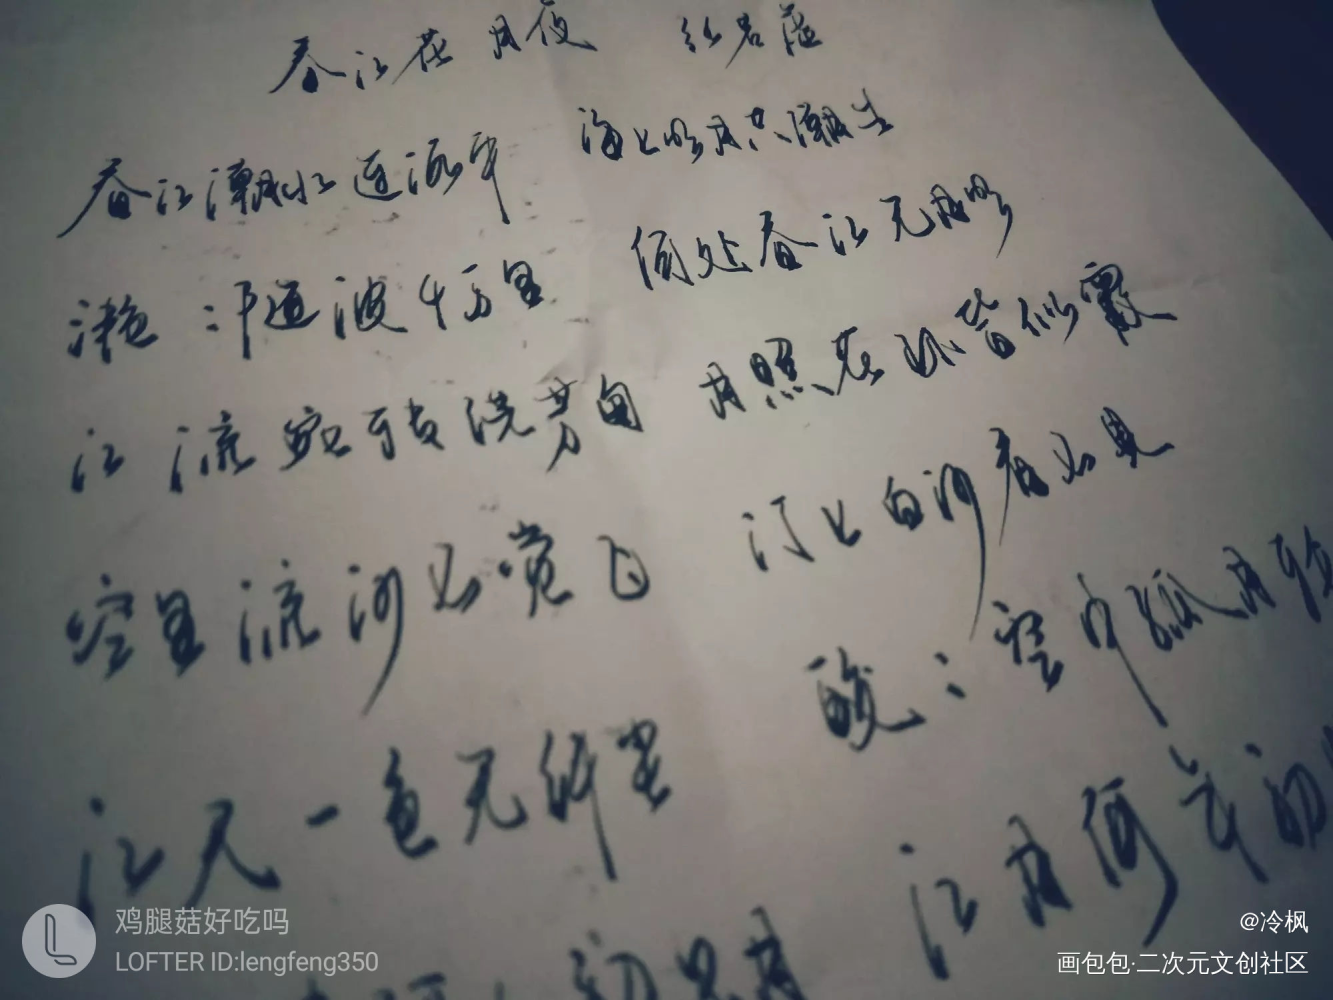 春江花月夜
春江潮水连海平 海上明月共潮生
滟滟随波千万里 何处春江无月明
江流宛转绕芳甸 月照花林皆似霰
空里流霜不觉飞 汀上白沙看不见
江天一色无纤尘 皎皎空中孤月轮
江月何年初
鸡腿菇好吃吗
LOFTER ID:lengfeng350
@冷枫
画包包·二次元文创社区